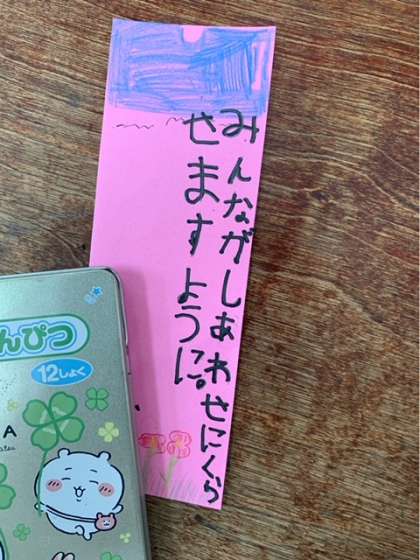 みんながしあわせにくら
せますように。
んぴつ
12しょく
A